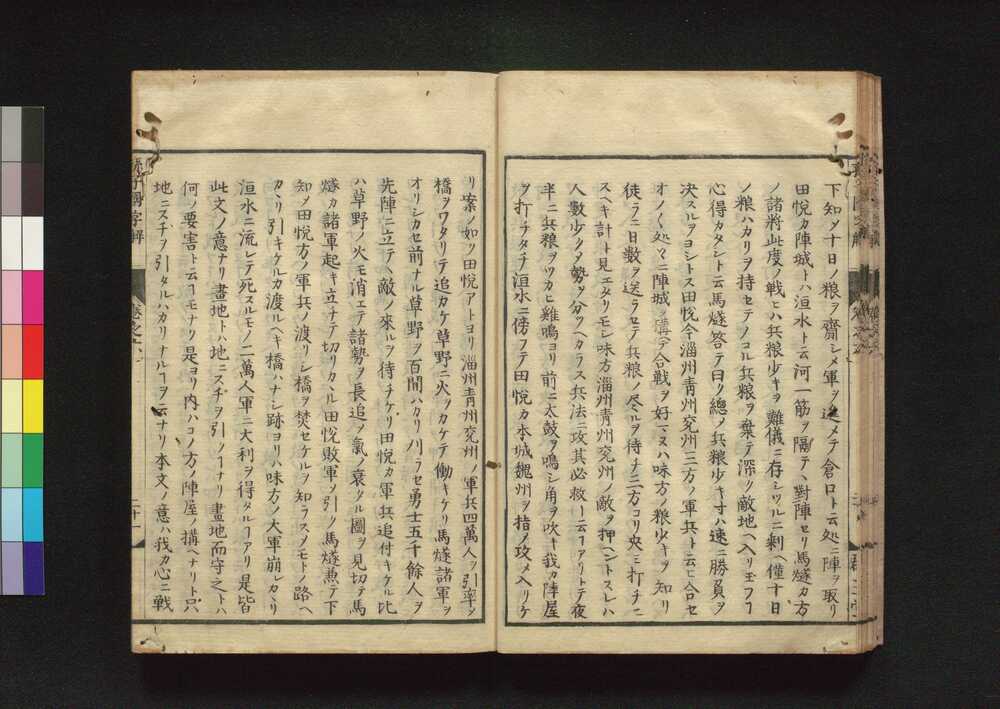 下知ソ十日ノ粮ヲ齎シメ軍ヲ進メテ倉口ト云処ニ陣ヲ取リ
田悦カ陣城トハ洹水ト云河一筋ヲ隔テヽ對陣セリ馬燧カ方
ノ諸將此度ノ戦ヒハ兵粮少キヲ難儀ニ存シツルニ剰ヘ僅十日
ノ粮ハカリヲ持セテノコル兵粮ヲ棄テ深ク敵地ヘ入リ玉フフ
心得カタシト云馬燧答テ曰ク總ノ兵粮少キ寸ハ速ニ勝負ヲ
决スルヲヨシトス田悦今淄州青州兗州三方ノ軍兵ト云ヒ合セ
オノ〱処〻ニ陣城ヲ搆テ合戦ヲ好マヌハ味方ノ粮少キヲ知リ
徒ラニ日數ヲ送ラセテ兵粮ノ尽ルヲ待チ三方コリ夾ミ打チニ
スヘキ計ト見エタリモシ味方淄州青州兗州ノ敵ヲ押ヘントスレハ
人數少クソ勢ヲ分クヘカラス兵法ニ攻其必救一ト云フアリトテ夜
半ニ兵粮ヲツカヒ雞鳴ヨリ前ニ太鼓ヲ鳴シ角ヲ吹キ我カ陣屋
ヲ打チタチ洹水ニ傍フテ田悦カ本城魏州ヲ指ソ攻メ入リケ
リ案ノ如ソ田悦アトヨリ淄州青州兗州ノ軍兵四萬人ヲ引率ソ
橋ヲワタリテ追カケ草野ニ火ヲカケテ働キケリ馬燧諸軍ヲ
オリシカセ前ナル草野ヲ百間ハカリ刈ラセ勇士五千餘人ヲ
先陣ニ立テヽ敵ノ來ルヲ待チケリ田悦カ軍兵追付キケル比
ハ草野ノ火モ消エテ諸勢ヲ長追ヲ氣ノ衰タル圖ヲ見切テ馬
燧カ諸軍起キ立チテ切リカヽル田悦敗軍ソ引ク馬燧兼テ下
知ソ田悦方ノ軍兵ノ渡リシ橋ヲ焚セケルヲ知ラスソモトノ路ヘ
カヽリ引キケルカ渡ルヘキ橋ハナシ跡ヨリハ味方ノ大軍崩レカヽリ
洹水ニ流レテ死スルモノ二萬人軍ニ大利ヲ得タルフアリ是皆
此文ノ意ナリ畫地トハ地ニスヂヲ引ノーナリ畫地而守之トハ
何ノ要害ト云フモナク是ヨリ内ハコノ方ノ陣屋ノ搆ヘナリト只
地ニスヂヲ引タルハカリナルーヲ云ナリ本文ノ意ハ我カ心ニ戦
孫子國字解